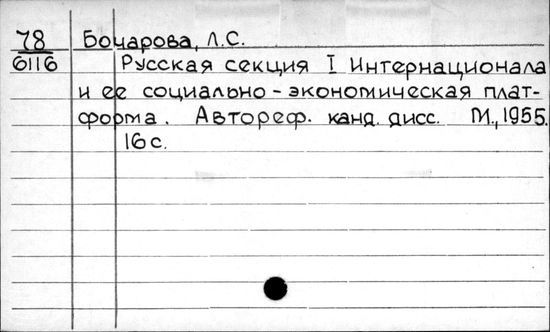 78 Бочарова, Л.С.
6116 Русская секция I Интернационала
и ее социально-экономическая плат-
форма. Автореф. канд. дисс. М., 1955.
16 с.